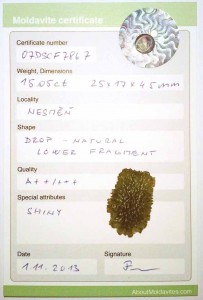 Moldavite certificate
Certificate number
07D3CF7867
Weight, Dimensions
15.05ct 25x17x4.5mm
Locality
NESMĚŇ
Shape
DROP - NATURAL
LOWER FRAGMENT
Quality
A++/+++
Special attributes
SHINY
Date
Signature
1.11.2013
AboutMoldavites.com